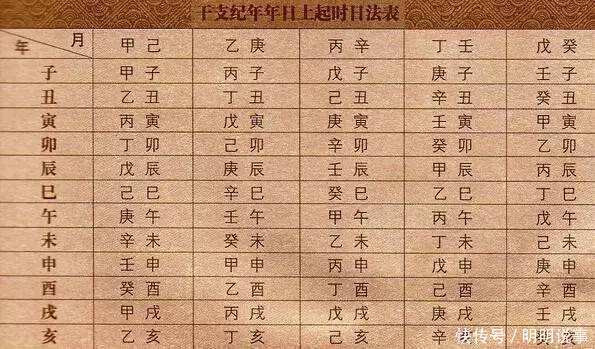 干支纪年年日上起时日法表
年 月 甲己 乙庚 丙辛 丁壬 戊癸
子 甲子 丙子 戊子 庚子 壬子
丑 乙丑 丁丑 己丑 辛丑 癸丑
寅 丙寅 戊寅 庚寅 壬寅 甲寅
卯 丁卯 己卯 辛卯 癸卯 乙卯
辰 戊辰 庚辰 壬辰 甲辰 丙辰
巳 己巳 辛巳 癸巳 乙巳 丁巳
午 庚午 壬午 甲午 丙午 戊午
未 辛未 癸未 乙未 丁未 己未
申 壬申 甲申 丙申 戊申 庚申
酉 癸酉 乙酉 丁酉 己酉 辛酉
戌 甲戌 丙戌 戊戌 庚戌 壬戌
亥 乙亥 丁亥 己亥 辛
快传号 / 明明说事